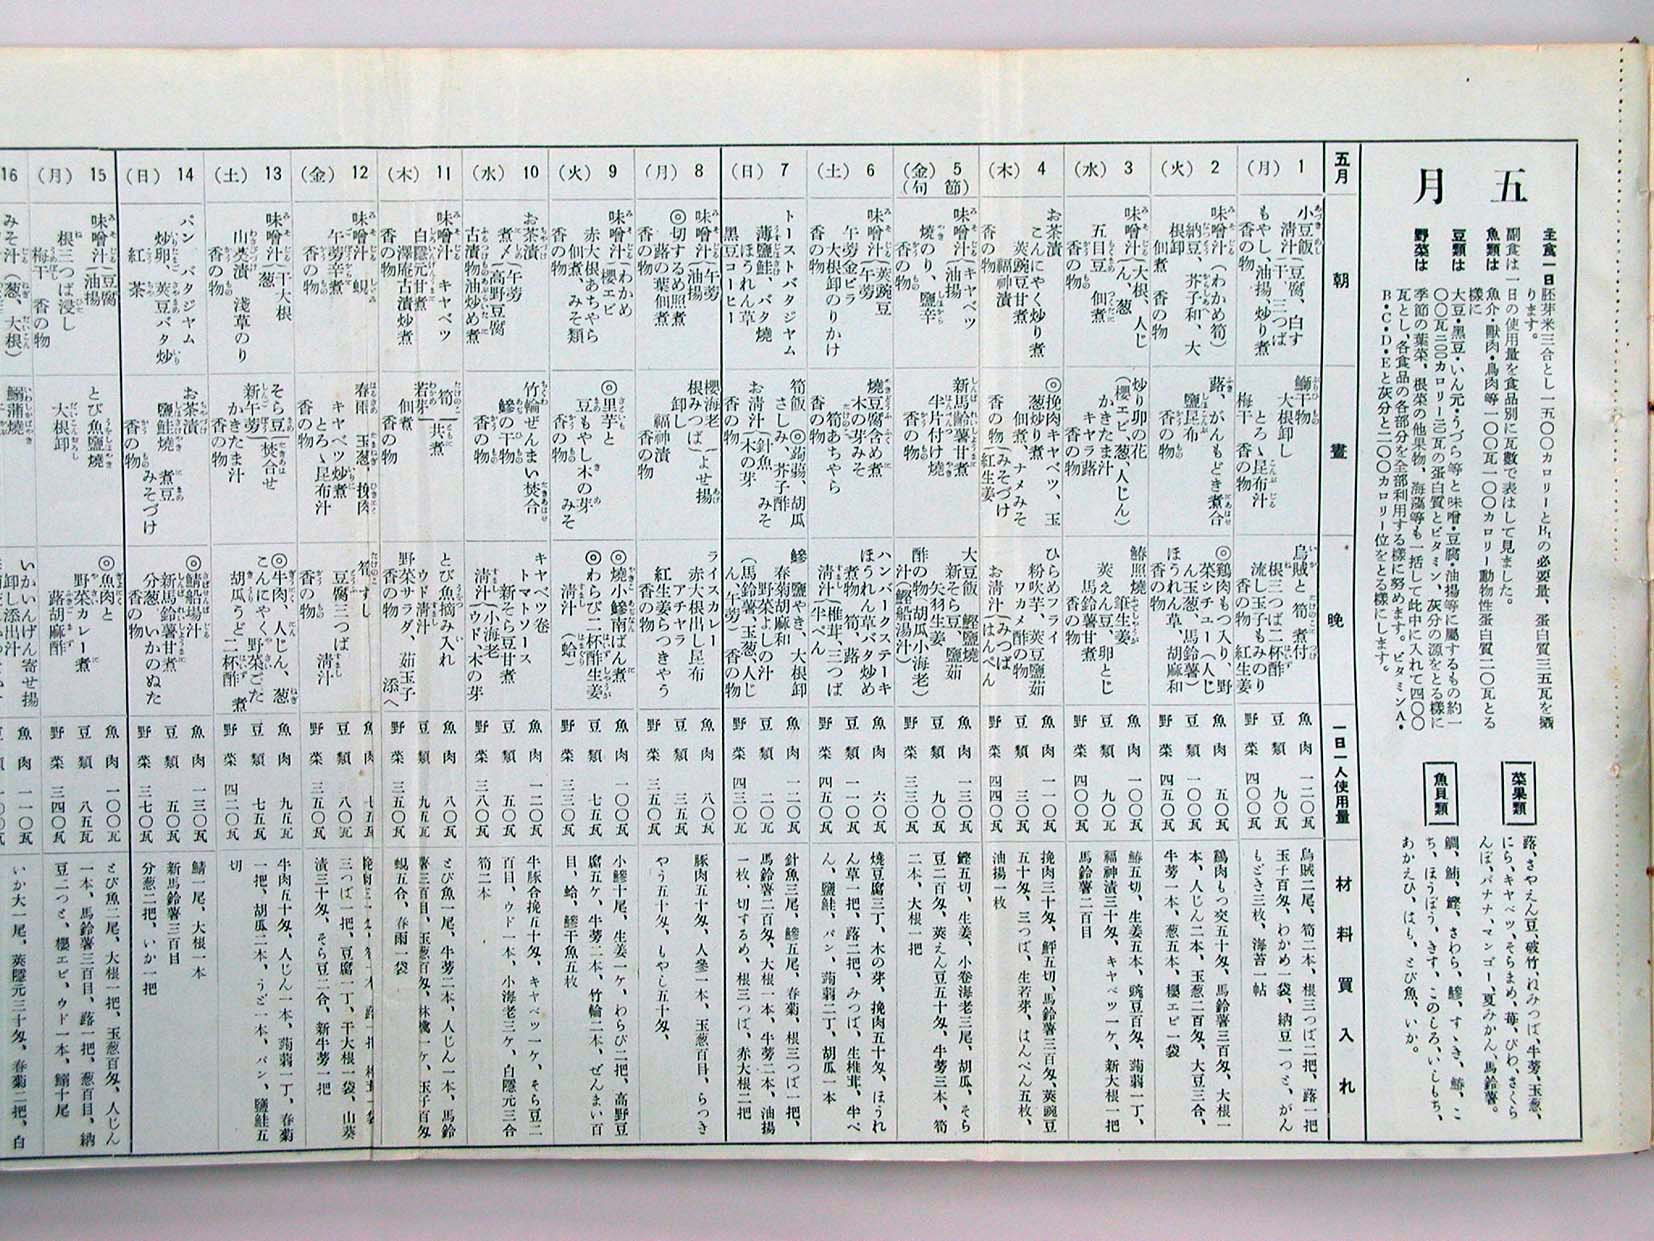 五月
主食一日 胚芽米三合とし一五〇〇カロリーとB₁の必要量、蛋白質三五瓦を攝
ります。
副食は一日の使用量を食品別に瓦數で表はして見ました。
魚類は 魚介・獸肉・鳥肉等一〇〇瓦一〇〇カロリー動物性蛋白質二〇瓦とる
様に
豆類は 大豆・黑豆・いん元・うづら等と味噌・豆腐・油揚等に屬するもの約一
〇〇瓦二〇〇カロリー二〇瓦の蛋白質とビタミン、灰分の源をとる様に
野菜は 季節の葉菜、根菜の他果物、海藻等も一括して此中に入れて四〇〇
瓦とし、各食品の各部分を全部利用する様に努めます。ビタミンA・
B・C・D・Eと灰分と二〇〇カロリー位をとる様にします。
菜果類
蕗、さやえん豆、破竹、ねみつば、牛蒡、玉葱、
にら、キャベツ、そらまめ、苺、びわ、さくら
んぼ、バナナ、マンゴー、夏みかん、馬鈴薯。
魚貝類
鯛、鮪、鰹、さわら、鰺、すゞき、鰆、こ
ち、ほうぼう、きす、このしろ、いしもち、
あかえひ、はも、とび魚、いか。
五月
朝
晝
晩
一日一人使用量
材料買入れ
1
(月)
小豆飯
淸汁(豆腐、白す干、三つば
もやし、油揚炒り煮
香の物
鰤干物
大根卸し
とろゝ昆布汁
梅干 香の物
烏賊と筍煮付
根三つば二杯酢
流し玉子もみのり
香の物 紅生姜
魚肉 一二〇瓦
豆類 九〇瓦
野菜 四〇〇瓦
烏賊二尾、筍二本、根三つば二把、蕗一把
玉子百匁、わかめ一袋、納豆一つと、がん
もどき三枚、海苔一帖
2
(火)
味噌汁(わかめ筍)
納豆、芥子和、大
根卸
佃煮 香の物
蕗、がんもどき煮合
鹽昆布
香の物
◎鶏肉もつ入り、野
菜シチュー(人じ
ん玉葱、馬鈴薯)
ほうれん草、胡麻和
香の物
魚肉 五〇瓦
豆類 一〇〇瓦
野菜 四五〇瓦
鶏肉もつ交五十匁、馬鈴薯三百匁、大根一
本、人じん二本、玉葱二百匁、大豆三合、
牛蒡一本、葱五本、櫻エビ一袋
3
(水)
味噌汁(大根、人じ
ん、葱
五目豆 佃煮
香の物
炒り卯の花
(櫻エビ、葱、人じん)
かきたま汁
キャラ蕗
香の物
鰆照燒 筆生姜
莢えん豆、卵とじ
馬鈴薯フライ
香の物
魚肉 一〇〇瓦
豆類 九〇瓦
野菜 四〇〇瓦
鰆五切、生姜五本、豌豆百匁、蒟蒻一丁、
福神漬三十匁、キャベツ一ケ、新大根一把
馬鈴薯二百目
4
(木)
お茶漬
こんにゃく炒り煮
莢豌豆甘煮
福神漬
香の物
◎挽肉キャベツ、玉
葱炒り煮
佃煮、ナメみそ
お淸汁(みそづけ
香の物 紅生姜
ひらめフライ
粉吹芋、莢豆鹽茹
ワカメ酢の物
お淸汁(みつば
はんぺん
魚肉 一一〇瓦
豆類 三〇瓦
野菜 四四〇瓦
挽肉三十匁、鮃五切、馬鈴薯三百匁、莢豌豆
五十匁、三つば、生若芽、はんぺん五枚、
油揚一枚
5
(金)
(節句)
味噌汁(キャベツ
油揚
燒のり、鹽辛
香の物
新馬鈴薯甘煮
半片付け燒
香の物
大豆飯 鰹鹽燒
新そら豆、鹽茹
矢羽生姜
酢の物(胡瓜小海老)
汁(鰹船湯汁)
魚肉 一三〇瓦
豆類 九〇瓦
野菜 五〇〇瓦
鰹五切、生姜、小卷海老三尾、胡瓜、そら
豆二百匁、莢えん豆五十匁、牛蒡三本、筍
二本、大根一把
6
(土)
味噌汁(莢豌豆
牛蒡
午蒡金ピラ
大根卸のりかけ
香の物
燒豆腐含め煮
木の芽みそ
筍あちやら
香の物
ハンバークステーキ
ほうれん草バタ炒め
煮物(筍、蕗
淸汁(椎茸、三つば
半ぺん
魚肉 六〇瓦
豆類 一一〇瓦
野菜 四五〇瓦
燒豆腐三丁、木の芽、挽肉五十匁、ほうれ
ん草一把、蕗二把、みつば、生椎茸、半ぺ
ん、鹽鮭、パン、蒟蒻二丁、胡瓜一本
7
(日)
トーストバタジャム
薄鹽鮭、バタ燒
ほうれん草
黑豆コーヒー
筍飯 ◎蒟蒻、胡瓜
さしみ、芥子酢みそ
お淸汁(針魚
木の芽
香の物
鰺鹽やき、大根卸
春菊胡麻和
野菜よしの汁
(馬鈴薯、玉葱、人じ
ん、午蒡) 香の物
魚肉 一〇〇瓦
豆類 二〇瓦
野菜 四三〇瓦
針魚三尾、鰺五尾、春菊、根三つば一把、
馬鈴薯二百匁、大根一本、牛蒡二本、油揚
一枚、切するめ、根三つば、赤大根二把
8
(月)
味噌汁(午蒡
油揚
◎切するめ照煮
蕗の葉佃煮
香の物
櫻海老
根みつば(よせ揚
卸し
福神漬
香の物
ライスカレー
赤大根出し昆布
アチャラ
紅生姜らつきやう
香の物
魚肉 八〇瓦
豆類 三五瓦
野菜 三五〇瓦
豚肉五十匁、人參一本、玉葱百目、らつき
やう五十匁、もやし五十匁、
9
(火)
味噌汁(わかめ
櫻エビ
赤大根あちやら
佃煮、みそ類
香の物
◎里芋と
豆もやし木の芽
みそ
香の物
◎燒小鰺南ばん煮
◎わらび二杯酢生姜
淸汁(蛤)
魚肉 一〇〇瓦
豆類 七五瓦
野菜 三三〇瓦
小鰺十尾、生姜一ケ、わらび二把、高野豆
腐五ケ、牛蒡二本、竹輪二本、ぜんまい百
目、蛤、鰺干魚五枚
10
(水)
お茶漬
煮〆(午蒡
高野豆腐
古漬物油炒め煮
香の物
竹輪ぜんまい焚合
鰺の干物
香の物
キャベツ卷
トマトソース
新そら豆甘煮
淸汁(小海老
ウド、木の芽
魚肉 一二〇瓦
豆類 五〇瓦
野菜 三八〇瓦
牛豚合挽五十匁、キャベツ一ケ、そら豆二
百目、ウド一本、小海老三ケ、白隱元三合
筍二本
11
(木)
味噌汁 キャベツ
白隱元甘煮
澤庵古漬炒煮
香の物
筍
若芽(共煮
佃煮
香の物
とび魚摘み入れ
ウド淸汁
野菜サラダ、茹玉子
香の物 添へ
魚肉 八〇瓦
豆類 九五瓦
野菜 三五〇瓦
とび魚一尾、牛蒡二本、人じん一本、馬鈴
薯三百目、玉葱百匁、林檎一ケ、玉子百匁
蜆五合、春雨一袋
12
(金)
味噌汁 蜆
午蒡辛煮
香の物
春雨 玉葱 挽肉
キャベツ炒煮
とろゝ昆布汁
香の物
筍すし
豆腐三つば
淸汁
香の物
魚肉 七五瓦
豆類 八〇瓦
野菜 三五〇瓦
三つば一把、豆腐一丁、干大根一袋、山葵
漬三十匁、そら豆二合、新牛蒡一把
13
(土)
味噌汁(干大根
葱
山葵漬 淺草のり
香の物
そら豆
新午蒡(焚合せ
かきたま汁
香の物
◎牛肉、人じん、葱
こんにやく、野菜ごた煮
胡瓜うど二杯酢
香の物
魚肉 九五瓦
豆類 七五瓦
野菜 四二〇瓦
牛肉五十匁、人じん一本、蒟蒻一丁、春菊
一把、胡瓜二本、うど一本、パン、鹽鮭五
切
14
(日)
パン バタジャム
炒卵、莢豆バタ炒
紅茶
お茶漬
鹽鮭燒 煮豆
筍のみそづけ
香の物
◎鯖船場汁
新馬鈴薯甘煮
分葱、いかのぬた
香の物
魚肉 一三〇瓦
豆類 五〇瓦
野菜 三七〇瓦
鯖一尾、大根一本
新馬鈴薯三百目
分葱二把、いか一把
15
(月)
味噌汁(豆腐
油揚
根三つば浸し
梅干 香の物
とび魚鹽燒
大根卸
◎魚肉と
野菜カレー煮
蕗胡麻酢
香の物
魚肉 一〇〇瓦
豆類 八五瓦
野菜 三四〇瓦
とび魚二尾、大根一把、玉葱百匁、人じん
一本、馬鈴薯三百目、蕗一把、葱百目、納
豆二つと、櫻エビ、ウド一本、鰯十尾
16
みそ汁(葱、大根)
鰯蒲燒
いかいんげん寄せ揚
卸し添出汁
魚肉 一一〇瓦
いか大一尾、莢隱元三十匁、春菊二把、白